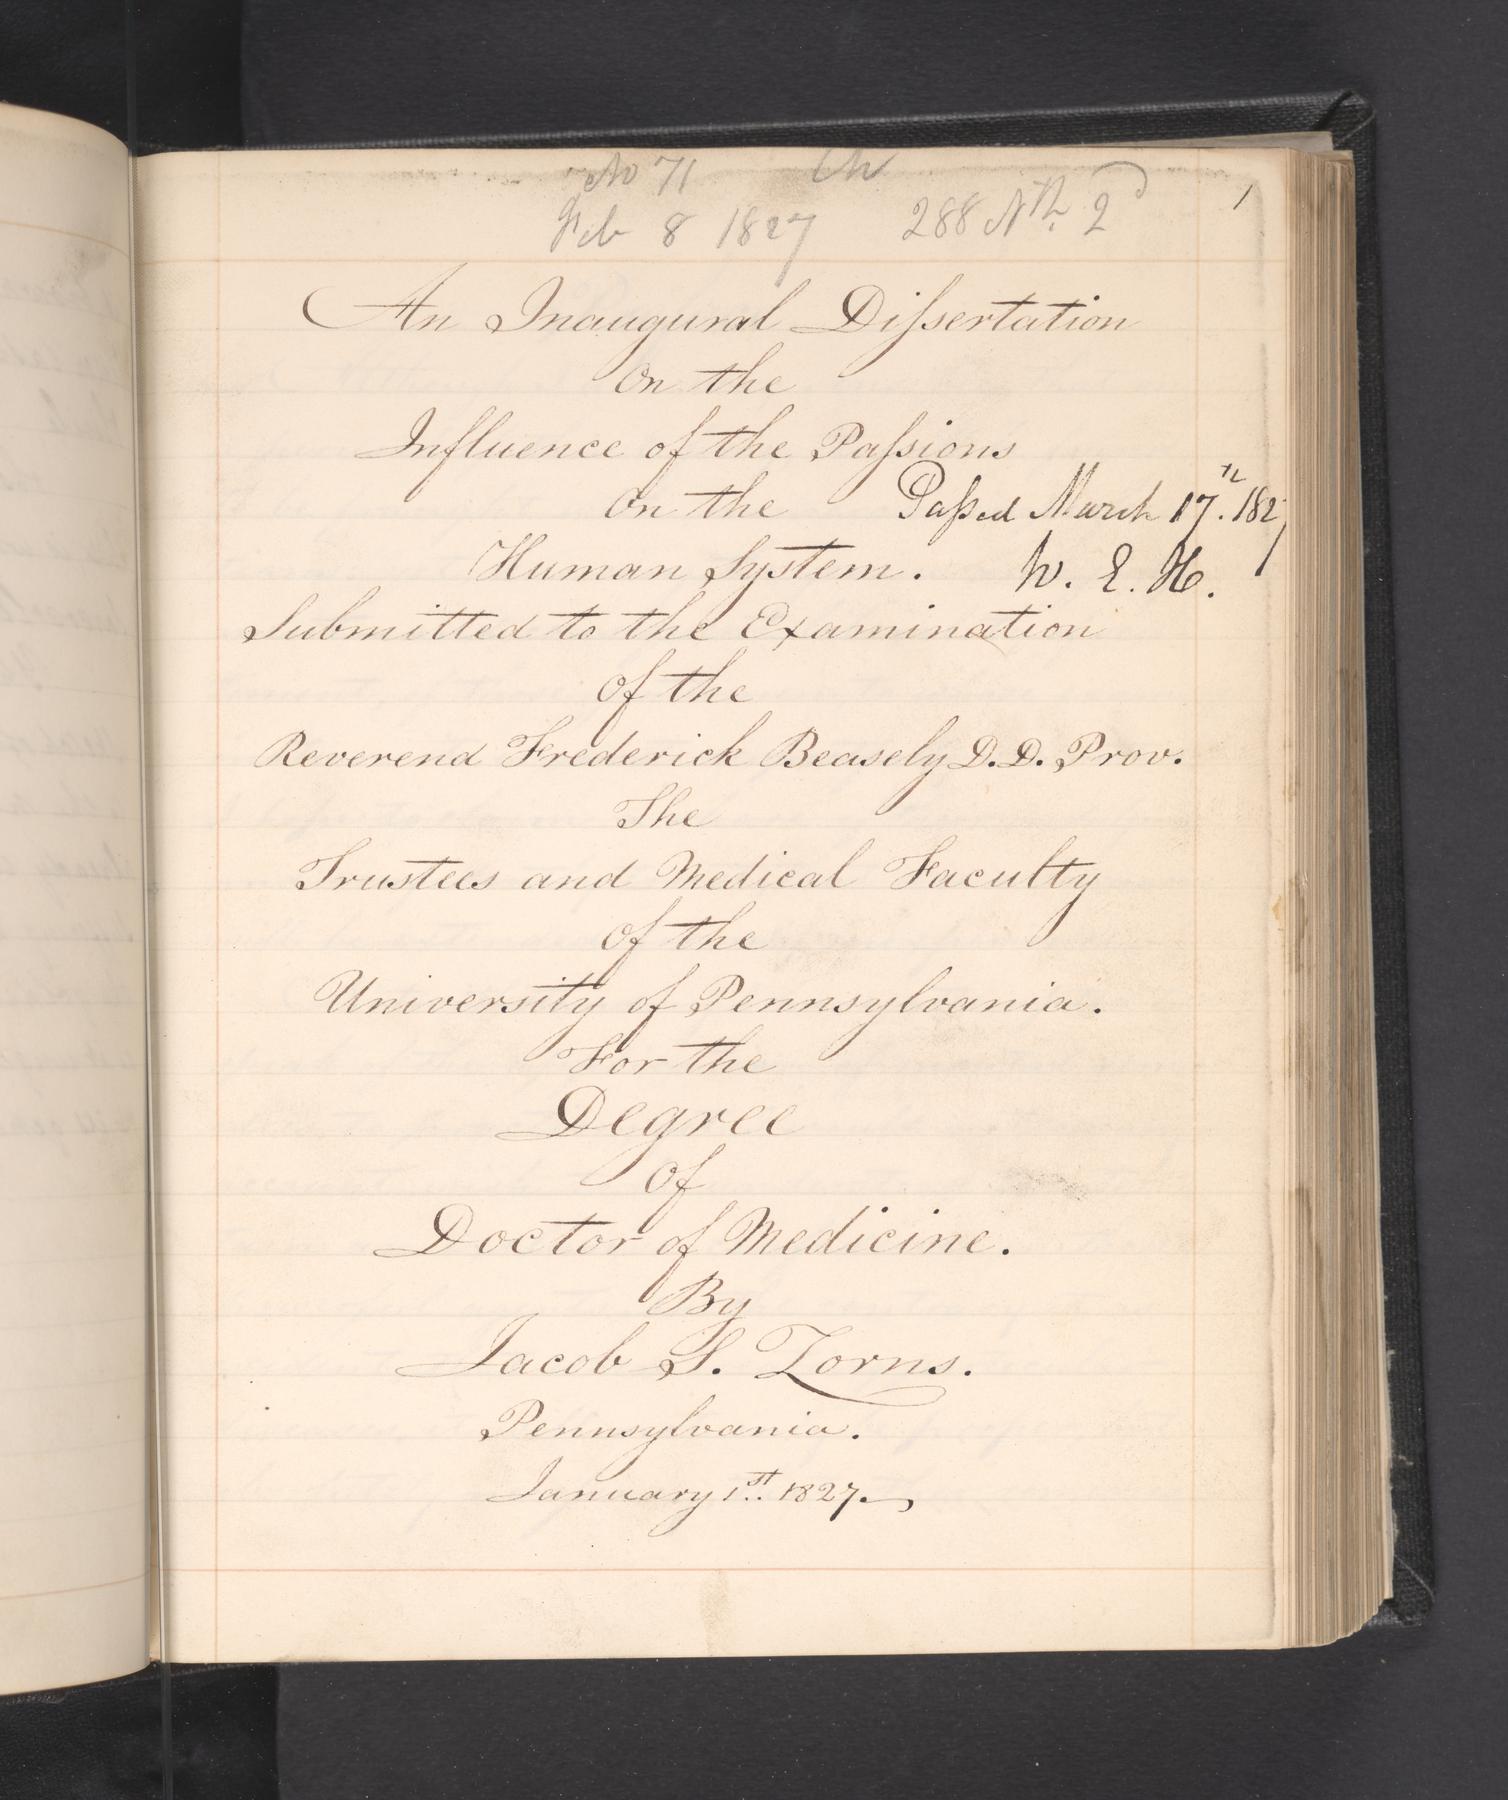 No 71
Feb 8 1827 288 Nth. 2d
1
An Inaugural Diſsertation
On the
Influence of the Paſsions
On the
Paſsed March 17th. 1827
Human System.
W. E. H.
Submitted to the Examination
Of the
Reverend Frederick Beasely D.D. Prov.
The
Trustees and Medical Faculty
Of the
University of Pennsylvania.
For the
Degree
Of
Doctor of Medicine.
By
Jacob S. Zorns.
Pennsylvania.
January 1st. 1827.